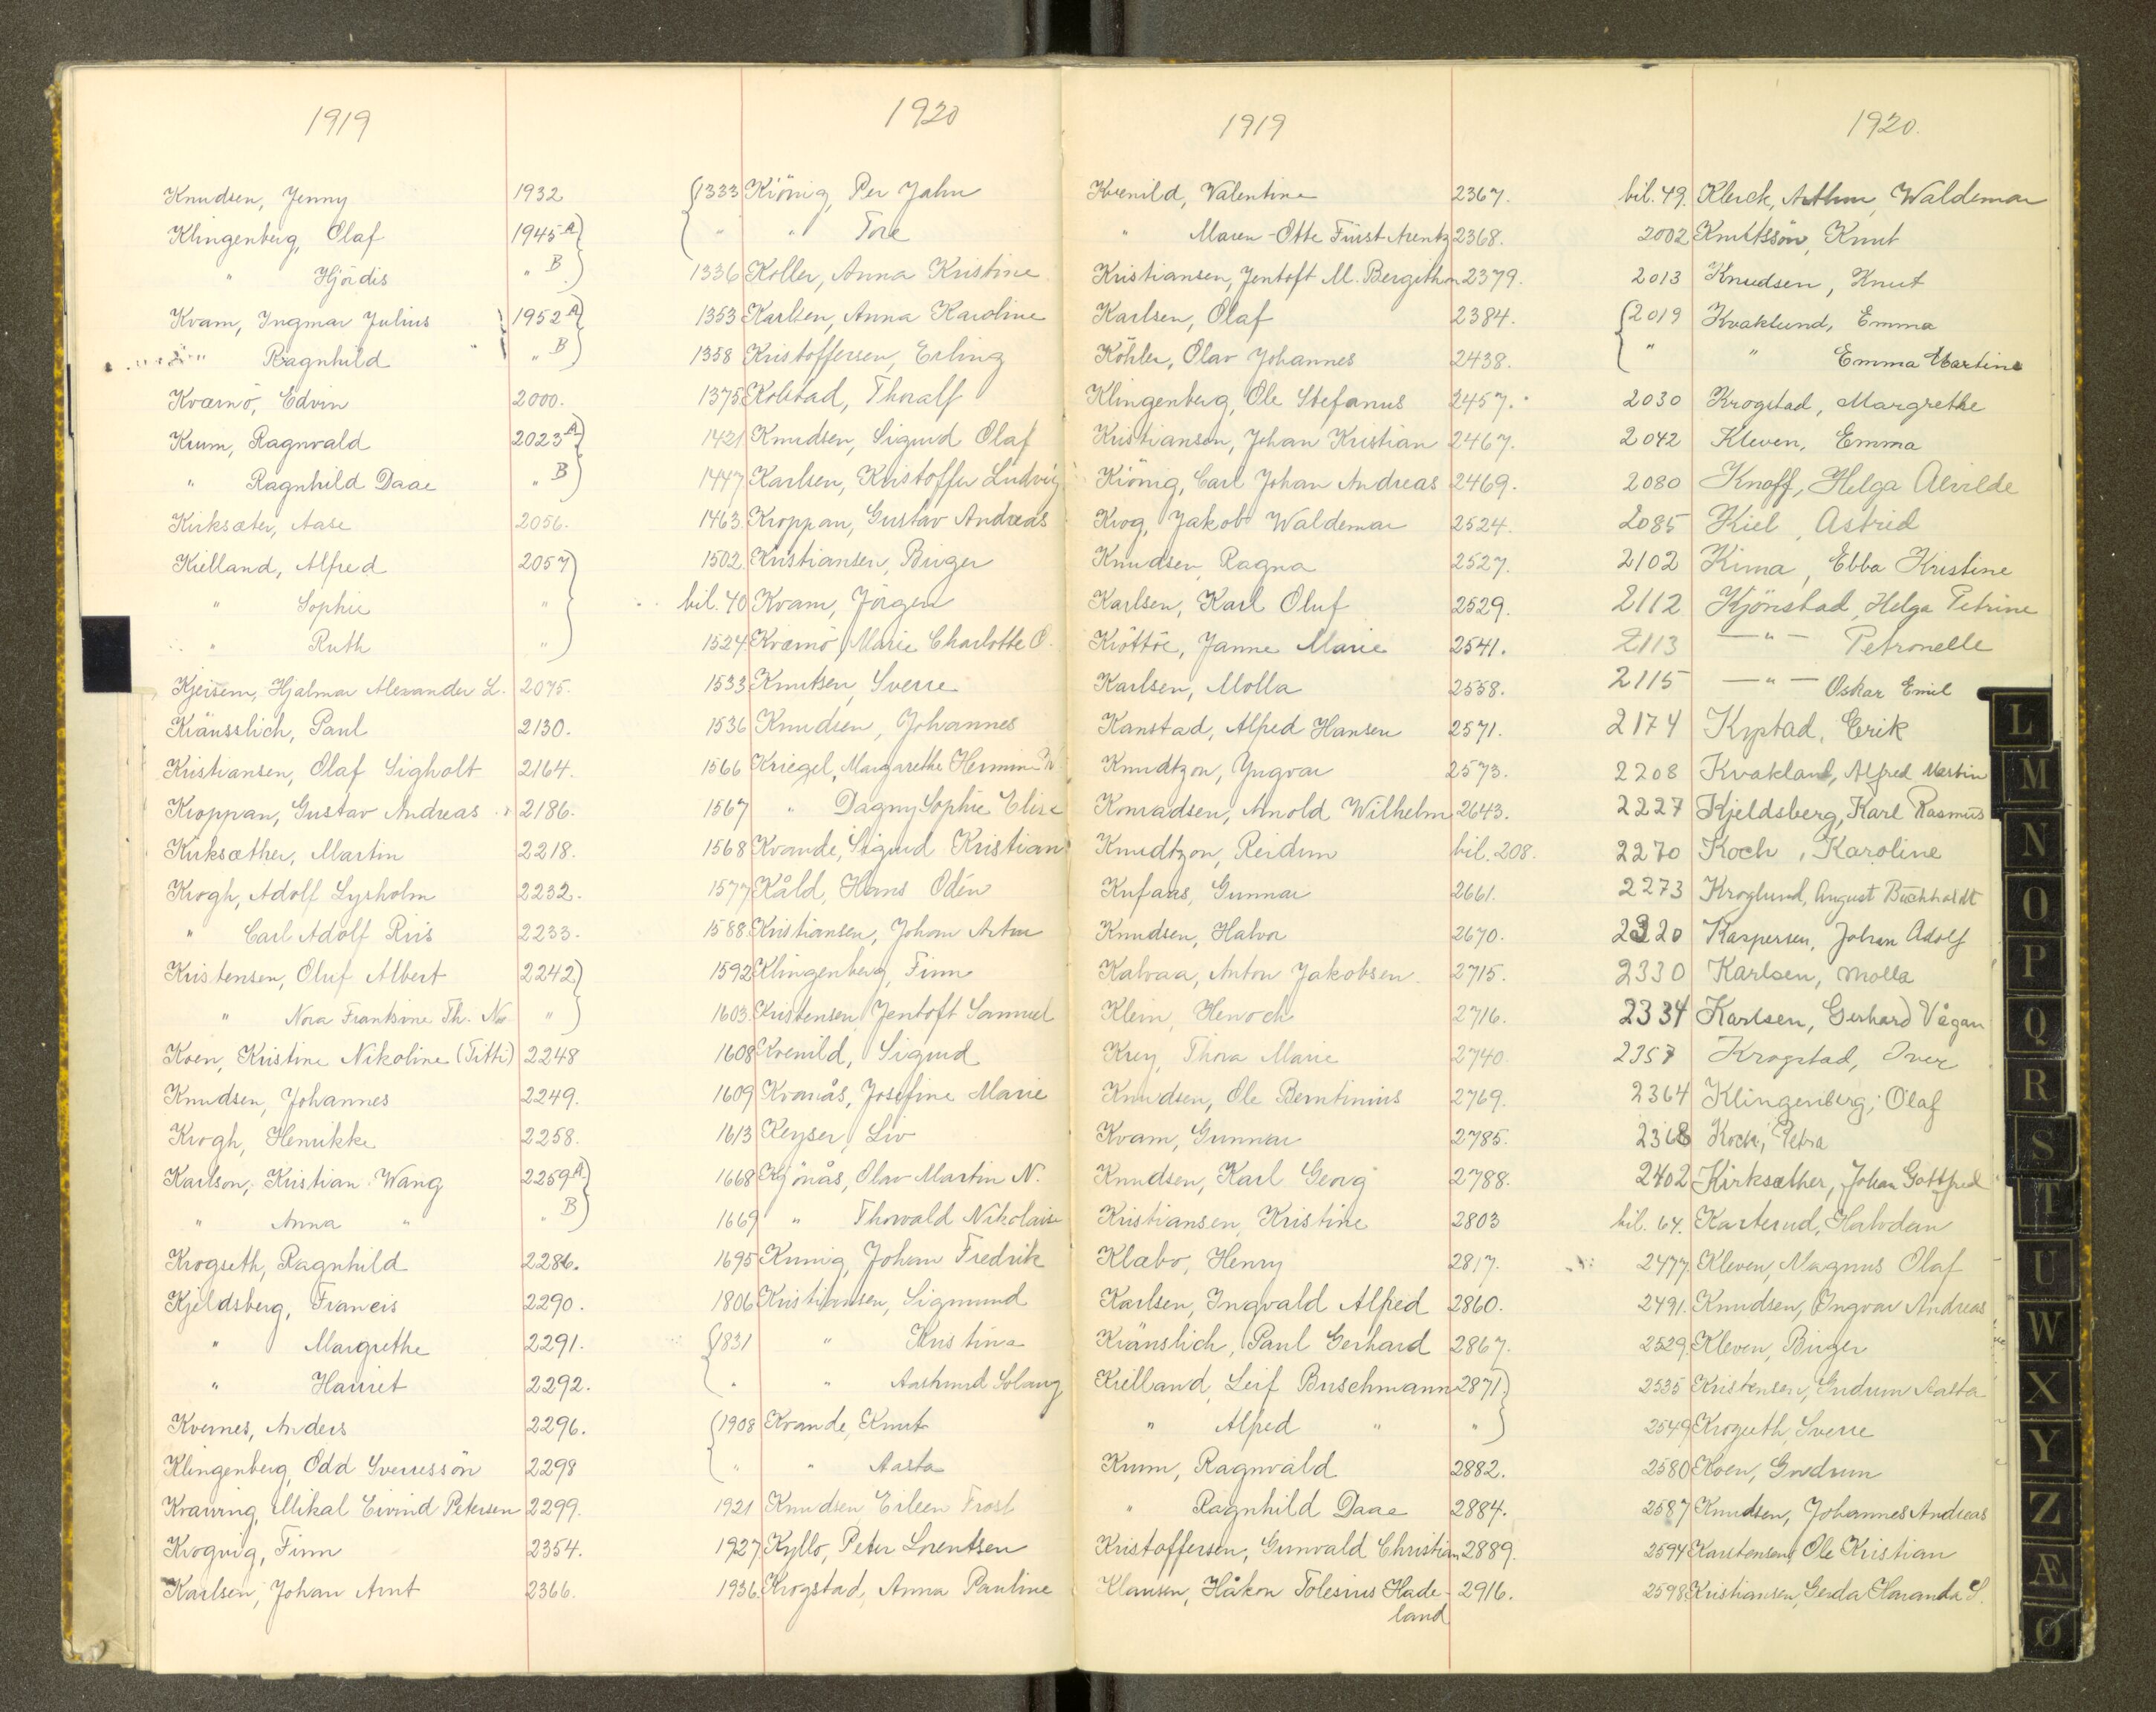 1919
Knudsen, Jenny 1932
Klingenberg, Olaf 1945 A
" Hjördis " B
Kvam, Ingmar Julius 1952 A
" Ragnhild " B
Kværnö, Edvin 2000.
Krum, Ragnvald 2023 A
" Ragnhild Daae " B
Kirksæter, Aase 2056.
Kielland, Alfred 2057
" Sophie "
" Ruth "
Kjeisem, Hjalmar Alexander L. 2075.
Kränsslich, Paul 2130.
Kristiansen, Olaf Sigholt 2164.
Kroppan, Gustav Andreas 2186.
Kirksæther, Martin 2218.
Krogh, Adolf Lysholm 2232.
" Carl Adolf Riis 2233.
Kristensen, Oluf Albert 2242
" Nora Frantsine Th. "
Koen, Kristine Nikoline (Titti) 2248
Knudsen, Johannes 2249.
Krogh, Henrikke 2258.
Karlson, Kristian Wang 2259 A
" Anna " " B
Krogseth, Ragnhild 2286.
Kjeldsberg, Francis 2290.
" Margrethe 2291.
" Harriet 2292.
Kvernes, Anders 2296.
Klingenberg, Odd Sverressön 2298
Kvavring, Mikal Eivind Petersen 2299.
Krogvig, Finn 2354.
Karlsen, Johan Arnt 2366.
1920
1333 Kiönig, Per Jahn
" " Tore
1336 Koller, Anna Kristine
1353 Karlsen, Anna Karoline
1358 Kristoffersen, Erling
1375 Kolstad, Thoralf
1421 Knudsen, Sigurd Olaf
1447 Karlsen, Kristoffer Ludvig
1463 Kroppan, Gustav Andreas
1502. Kristiansen, Birger
bil. 40 Kvam, Jörgen
1524 Kværnö, Marie Charlotte O.
1533 Knutsen, Sverre
1536 Knudsen, Johannes
1566 Kriegel, Margarethe Hermine
1567 " Dagny Sophie Elise
1568 Kvande, Sigurd Kristian
1577 Kåld, Hans Odin
1588. Kristiansen, Johan Artur
1592 Klingenberg, Finn
1603. Kristensen, Jentoft Samuel
1608 Kvenild, Sigurd
1609 Kvanås, Josefine Marie
1613 Keyser, Liv
1668 Kjönås, Olav Martin N.
1669 " Thorvald Nikolaise
1695 Kunig, Johan Fredrik
1806 Kristiansen, Sigmund
1831 " Kristina
" " Aasmund Solaug
1908 Kvande, Knut
" " Aasta
1921 Knudsen, Eileen Frost
1927 Kyllo, Peter Lorentsen
1936. Krogstad, Anna Pauline
1919
Kvenild, Valentine 2367.
" Maren-Otte Fürst Arentz 2368.
Kristiansen, Jentoft M. Bergethon 2379.
Karlsen, Olaf 2384.
Köhler, Olav Johannes 2438.
Klingenberg, Ole Stefanus 2457.
Kristiansen, Johan Kristian 2467.
Kiönig, Carl Johan Andreas 2469.
Krog, Jakob Waldemar 2524.
Knudsen, Ragna 2527.
Karlsen, Karl Oluf 2529.
Kröttöe, Janne Marie 2541.
Karlsen, Molla 2558.
Kanstad, Alfred Hansen 2571.
Knudtzon, Yngvar 2573.
Konradsen, Arnold Wilhelm 2643.
Knudtzon, Reidun bil. 208.
Knfaas, Gunnar 2661.
Knudsen, Halvor 2670.
Kalvaa, Anton Jakobsen 2715.
Klein, Henoch 2716.
Krey, Thora Marie 2740.
Knudsen, Ole Berntinius 2769.
Kvam, Gunnar 2785.
Knudsen, Karl Georg 2788.
Kristiansen, Kristine 2803
Klæbo, Henry 2817.
Karlsen, Ingvald Alfred 2860.
Kränslich, Paul Gerhard 2867.
Kielland, Leif Buschmann 2871
" Alfred " "
Krum, Ragnvald 2882.
" Ragnhild Daae 2884.
Kristoffersen, Gunvald Christian 2889.
Klausen, Håkon Tolesius Hade- 2916.
land
1920.
bil. 49. Klerck, Arthur Waldemar
2002 Knutssön, Knut
2013 Knudsen, Knut
2019 Kvaklund, Emma
" " Emma Martine
2030 Krogstad, Margrethe
2042 Kleven, Emma
2080 Knoff, Helga Alvilde
2085 Kiel, Astrid
2102 Kima, Ebba Kristine
2112 Kjönstad, Helga Petrine
2113 — " — Petronelle
2115 — " — Oskar Emil
2174 Kystad, Erik
2208 Kvakland, Alfred Martin
2227 Kjeldsberg, Karl Rasmus
2270 Koch, Karoline
2273 Kroglund, August Buchholdt
2320 Kaspersen, Johan Adolf
2330 Karlsen, Molla
2334 Karlsen, Gerhard Vågan
2357 Krogstad, Iver
2364 Klingenberg, Olaf
2368 Kock, Petra
2402 Kirksæther, Johan Gottfred
bil. 64. Karterud, Halvdan
2477 Kleven, Magnus Olaf
2491. Knudsen, Ingvar Andreas
2529. Kleven, Birger
2535 Kristensen, Gudrun Aasta
2549 Krogseth, Sverre
2580 Koen, Gudrun
2587 Knudsen, Johannes Andreas
2594 Karstensen, Ole Kristian
2598 Kristiansen, Gerda Haranda S.
L
M
N
O
P
Q
R
S
T
U
W
X
Y
Z
Æ
Ø